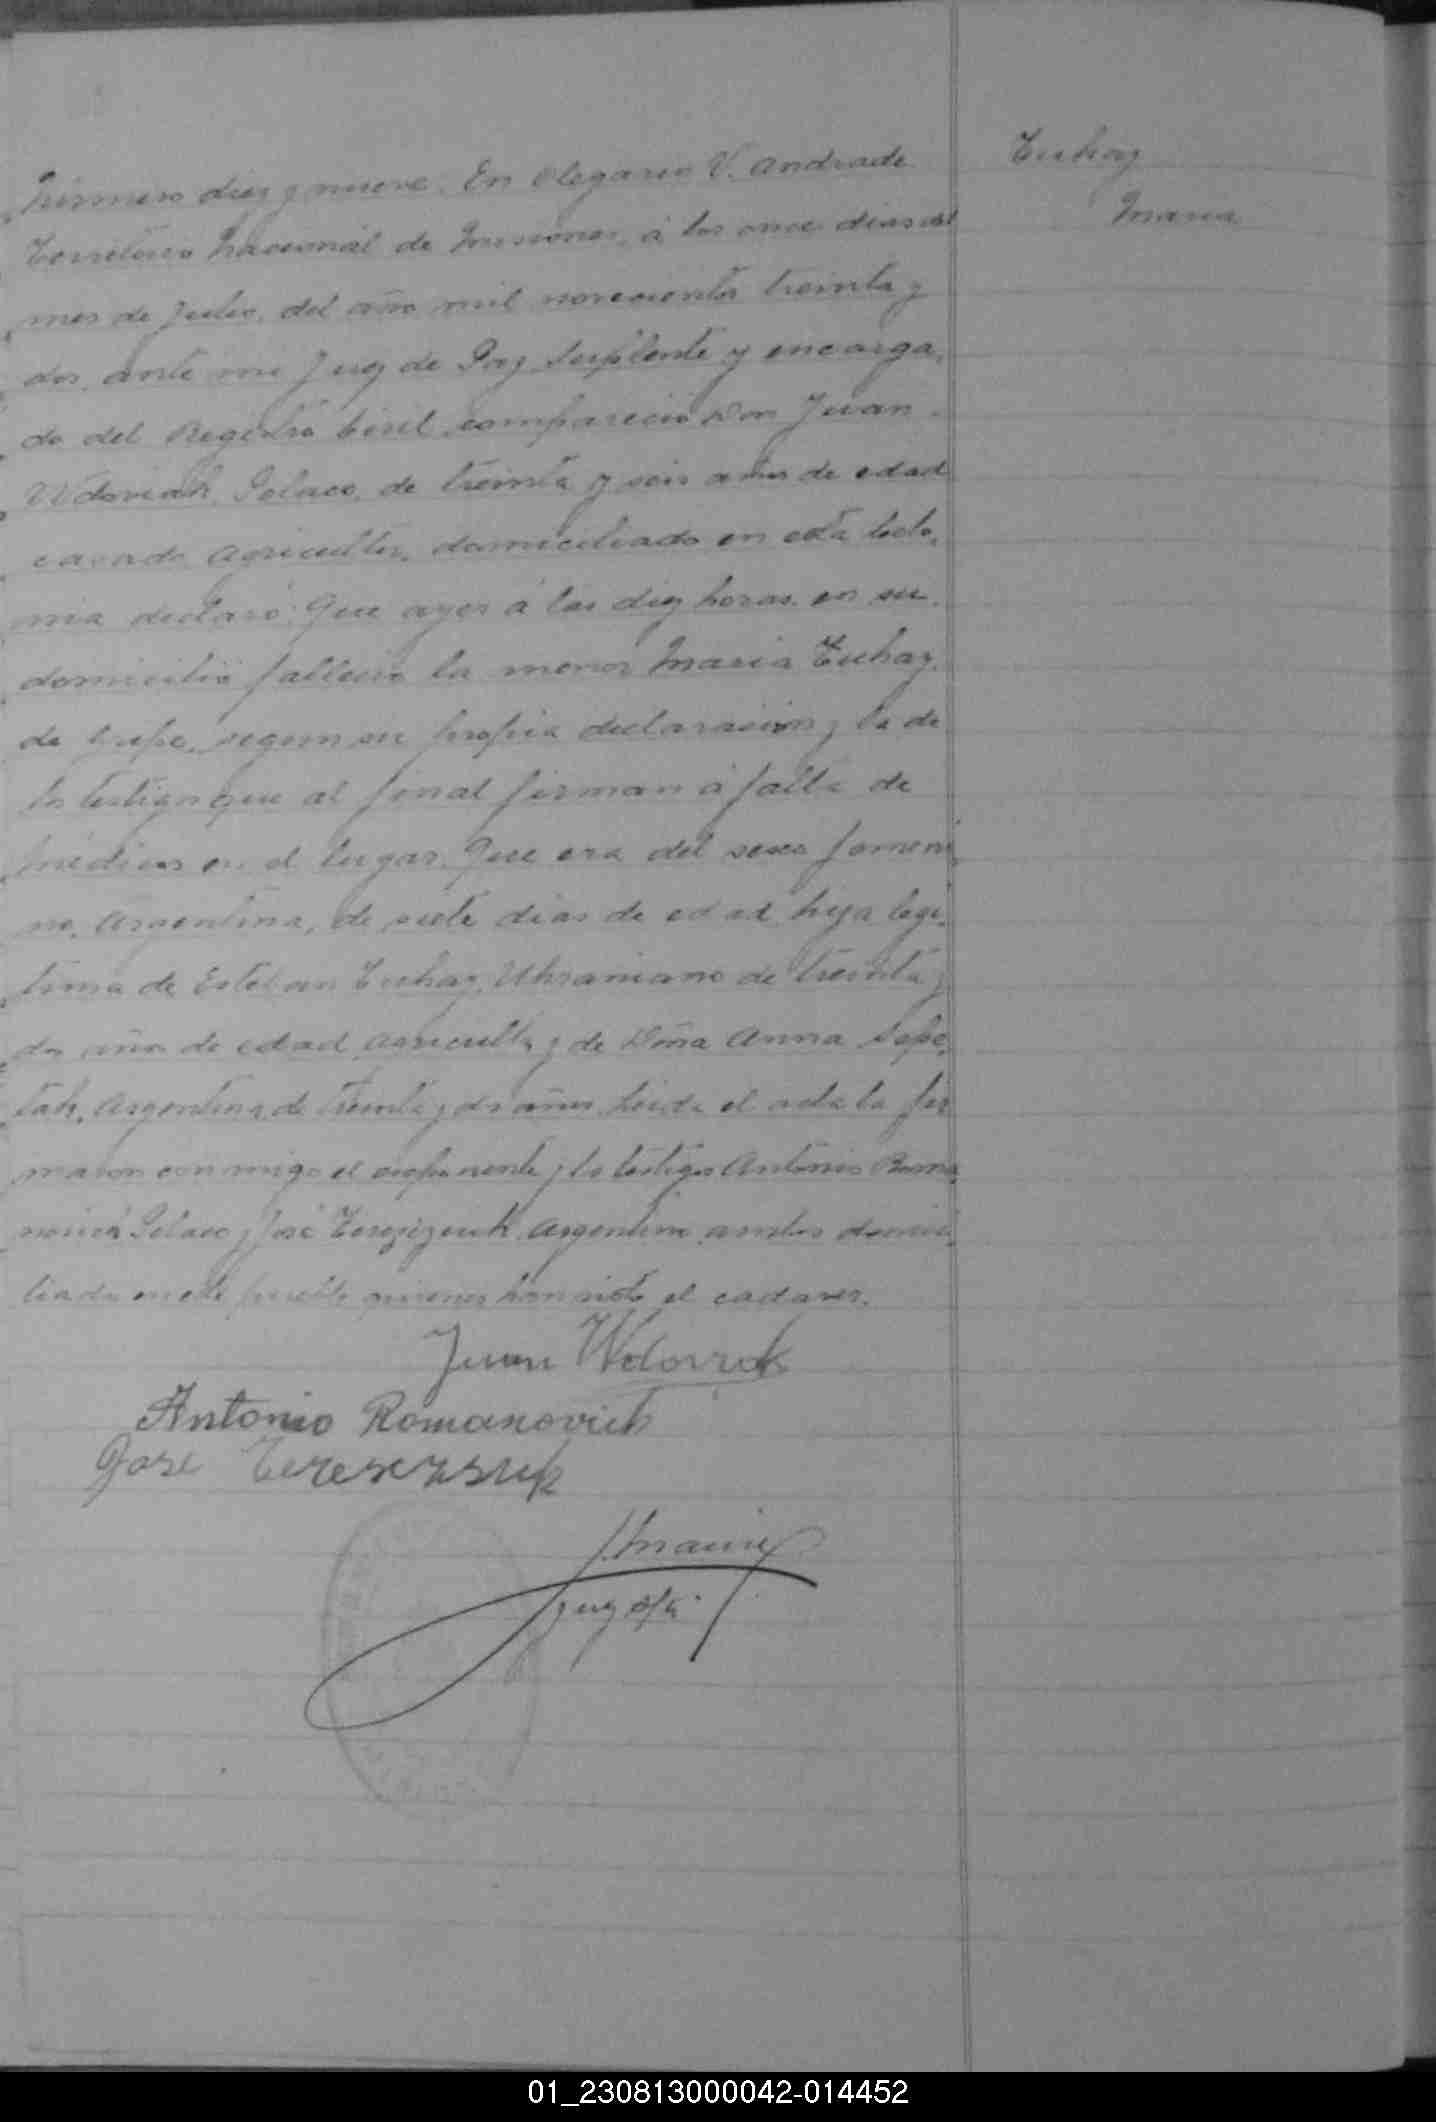 Número diez y nueve. En Olegario V. Andrade
Tuhay
Territorio Nacional de Misiones, á los once dias del
Maria
mes de Julio, del año mil novecientos treinta y
dos, ante mi Juez de Paz Suplente y encarga,
do del Registro Civil comparecio Don Juan
Wdoviak, Polaco, de treinta y seis años de edad
casado, agricultor, domiciliado en esta Colo,
nia declaró: Que ayer á las diez horas en su
domicilio fallecio la menor Maria Tuhay.
de gripe, segun su propia declaracion y la de
los testigos que al final firman á falta de
médicos en el lugar. Que era del sexo femeni
no, Argentina, de siete dias de edad, hija legi,
tima de Esteban Tuhay, Ukraniano de treinta y
dos años de edad, agricultor y de Doña Anna Sope,
tak, Argentina de treinta y dos años, leida el acta la fir
maron conmigo el exponente y los testigos Antonio Roma,
novich Polaco y José Terezizcuk, Argentino, ambos domici,
liados en este pueblo quienes han visto el cadaver.
Juan Wdoviak
Antonio Romanovich
Jose
Juez
01_230813000042-014452